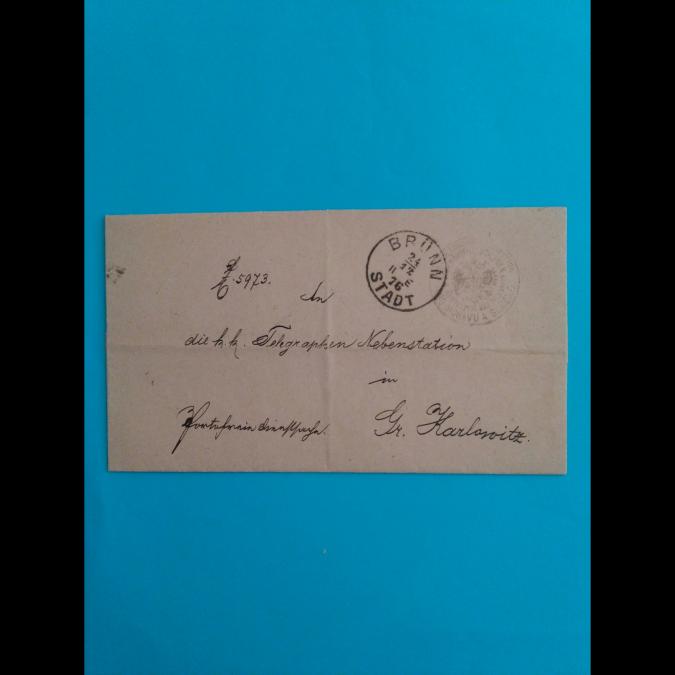 BRÜNN
24
12
11 E
76
STADT
5973.
An
die k.k. Telegraphen Nebenstation
in
Portofreie Dienstsache.
Gr. Karlowitz.